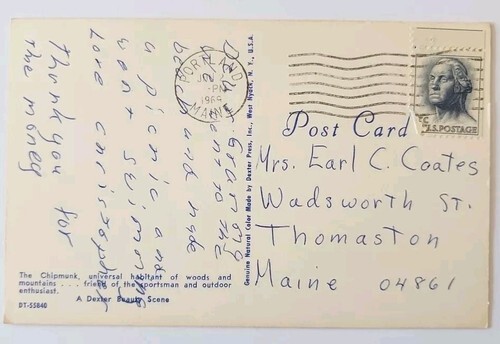 Grammy
went to the
beach and made
a picnic and
went swimming
Love Christopher
thank you for
the money
PORTLAND
PM
1965
MAINE
U.S. POSTAGE
Post Card
Genuine Natural Color Made by Dexter Press, Inc., West Nyack, N. Y., U.S.A.
Mrs. Earl C. Coates
Wadsworth St.
Thomaston
Maine 04861
The Chipmunk, universal habitant of woods and
mountains . . . friend of the sportsman and outdoor
enthusiast.
A Dexter Beauty Scene
DT-55840